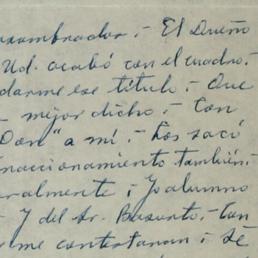 asombrador. - El Dueño
Ud. acabó con el cuadro.
darme ese título. - Que
- mejor dicho. - Con
Don" a mí. - Los sacó
naccionamiento también.
eralmente; Yo alumno
- Y del Sr. Basurto. - Con
me contestaran; Sé